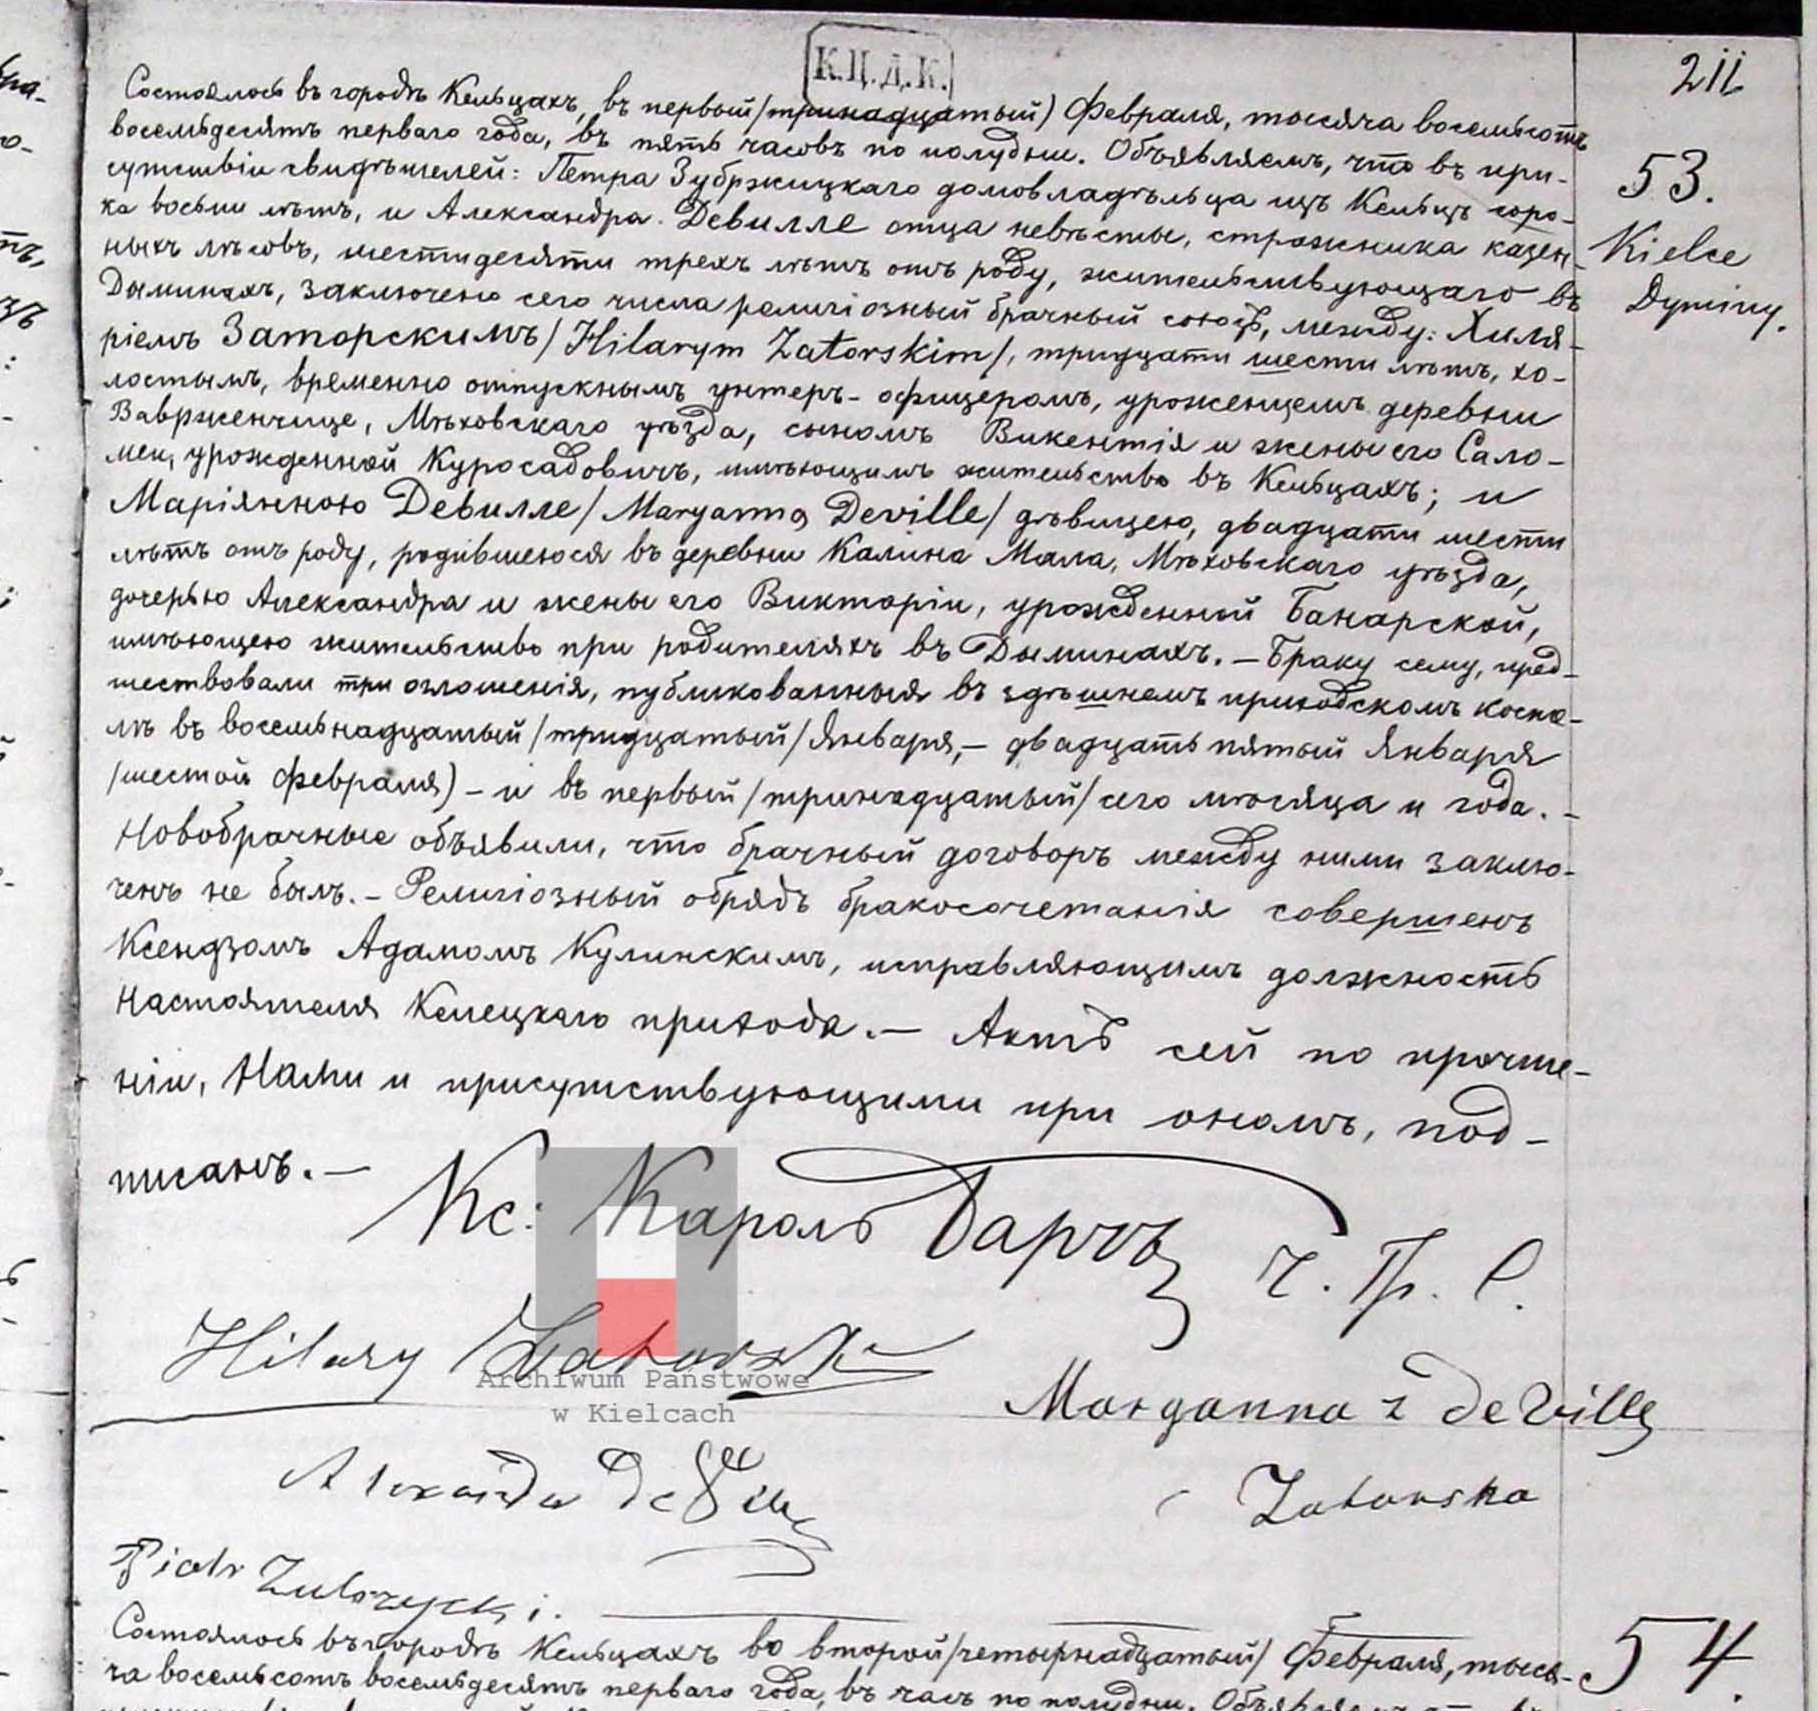 К.Ц.Д.К.
211
Состоялось въ городѣ Кельцахъ, въ первый /тринадцатый) Февраля, тысяча восемьсотъ
восемьдесятъ перваго года, въ пять часовъ по полудни. Объявляемъ, что въ при-
сутствіи свидѣтелей: Петра Зубржицкаго домовладѣльца изъ Кельцъ соро-
ка восьми лѣтъ, и Александра Девилле отца невѣсты, стражника казен-
ныхъ лѣсовъ, шестидесяти трехъ лѣтъ отъ роду, жительствующаго въ
Дыминахъ, заключено сего числа религіозный брачный союзъ, между: Хиля-
ріемъ Заторскимъ /Hilarym Zatorskim/, тридцати шести лѣтъ, хо-
лостымъ, временно отпускнымъ унтеръ-офицеромъ, уроженцемъ деревни
Вавърженчице, Мѣховскаго уѣзда, сыномъ Викентія и жены его Сало-
меи, урожденной Куросадовичъ, имѣющимъ жительство въ Кельцахъ; и
Маріянною Девилле /Maryanną Deville/ дѣвицею, двадцати шести
лѣтъ отъ роду, родившеюся въ деревни Калина Мала, Мѣховскаго уѣзда,
дочерью Александра и жены его Викторіи, урожденной Банарской,
имѣющею жительство при родителяхъ въ Дыминахъ. – Браку сему, пред-
шествовали три оглошенія, публикованныя въ здѣшнемъ приходскомъ косте-
лѣ въ восемьнадцатый /тридцатый/ Января, – двадцать пятый Января
/шестой Февраля) – и въ первый /тринадцатый/ сего мѣсяца и года. –
Новобрачные объявили, что брачный договоръ между ними заклю-
ченъ не былъ. – Религіозный обрядъ бракосочетанія совершенъ
Ксендзомъ Адамомъ Кулинскимъ, исправляющимъ должность
Настоятеля Келецкаго прихода. – Актъ сей по прочте-
ніи, Нами и присутствующими при ономъ, под-
писанъ. –
53.
Kielce
Dyminy.
Кс: Кароль Барчъ Ч. Гр. С.
Hilary Zatorski
Maryanna z de Ville
Zatorska
Archiwum Państwowe
w Kielcach
Alexander DeVille
Piotr Zubrzycki.
54.
Состоялось въ городѣ Кельцахъ во второй /четырнадцатый/ Февраля, тыся-
ча восемьсотъ восемьдесятъ перваго года, въ часъ по полудни.